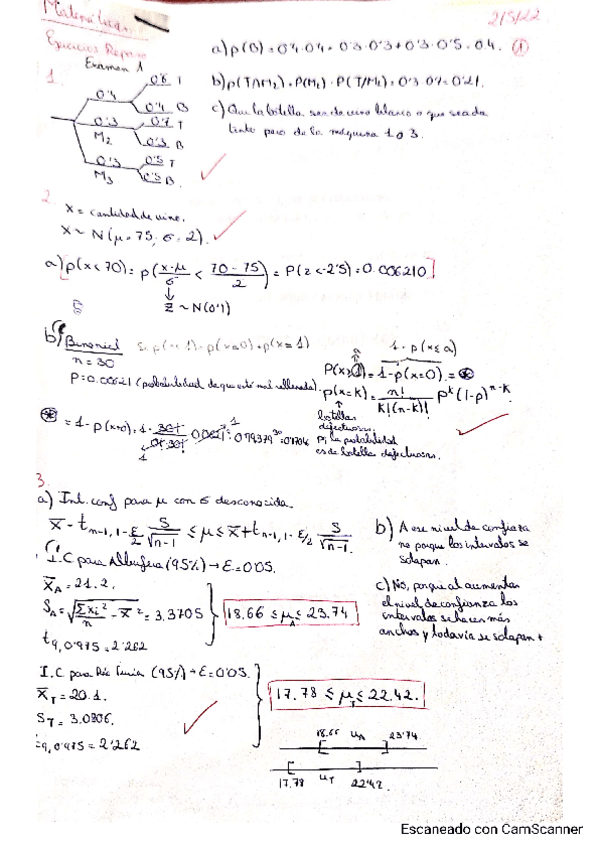 Matemáticas
2/5/22
Ejercicios Repaso
Examen 1
1.
0'4
0'6 T
0'4 B
0'3
M₂
0'7 T
0'3 B
0'3
M₃
0'5 T
0'5 B
a) p(B) = 0'4·0'4 + 0'3·0'3 + 0'3·0'5 = 0.4. ①
b) p(T∩M₂) = P(M₂) · P(T/M₂) = 0'3·0'7 = 0'21.
c) Que la botella sea de vino blanco o que sea de
tinto pero de la máquina 1 o 3.
2.
X = cantidad de vino.
X ~ N(μ = 75, σ = 2).
a) p(x < 70) = p(x-μ/σ < 70-75/2) = P(z < -2'5) = 0.006210
Z ~ N(0,1)
b) Binomial
n = 30
P = 0.00621 (probabilidad de que esté mal rellenada).
P(x≥1) = 1 - p(x=0) = ⊛
p(x=k) = n!/k!(n-k)! p^k (1-p)^n-k
botellas
defectuosas
p, la probabilidad
es de botella defectuosa.
3.
a) Int. conf para μ con σ desconocida.
x̄ - t n-1, 1-ε/2 S/√n-1 ≤ μ ≤ x̄ + t n-1, 1-ε/2 S/√n-1
I.C para Albufera (95%) → ε = 0'05.
x̄_A = 21.2.
S_A = √(Σxi²/n - x̄²) = 3.3705
t 9, 0'975 = 2'262
18.66 ≤ μ_A ≤ 23.74
b) A ese nivel de confianza
no porque los intervalos se
solapan.
c) No, porque al aumentar
el nivel de confianza los
intervalos se hacen más
anchos y todavía se solapan +
(95%) → ε = 0'05.
x̄_T = 20.1.
S_T = 3.0806.
9, 0'975 = 2'262
17.78 ≤ μ_T ≤ 22.42.
18.66 μ_A 23'74
17.78 μ_T 22'42
Escaneado con CamScanner